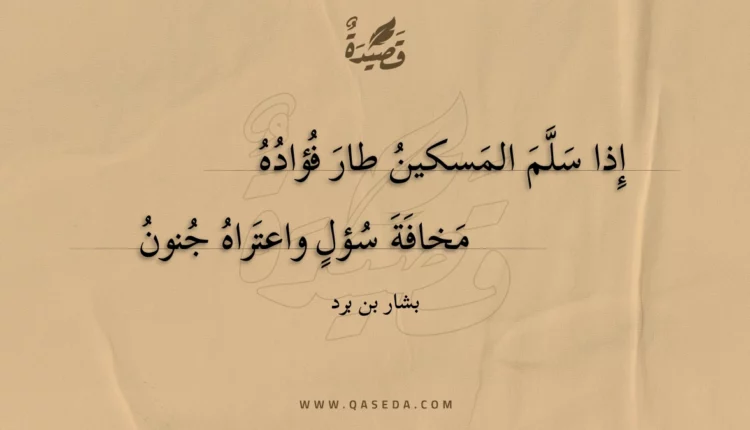 قَصِيْدَةٌ
إِذا سَلَّمَ المَسكينُ طارَ فُؤادُهُ
مَخافَةَ سُؤلٍ واعتَراهُ جُنونُ
بشار بن برد
WWW.QASEDA.COM